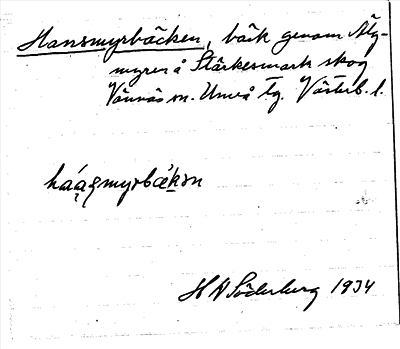 Hansmyrbäcken, bäck genom Älg-
myren å Stärkesmark skog
Vännäs sn. Umeå tg. Västerb. l.
håąsmyrbäkǝn
H N Söderberg 1934